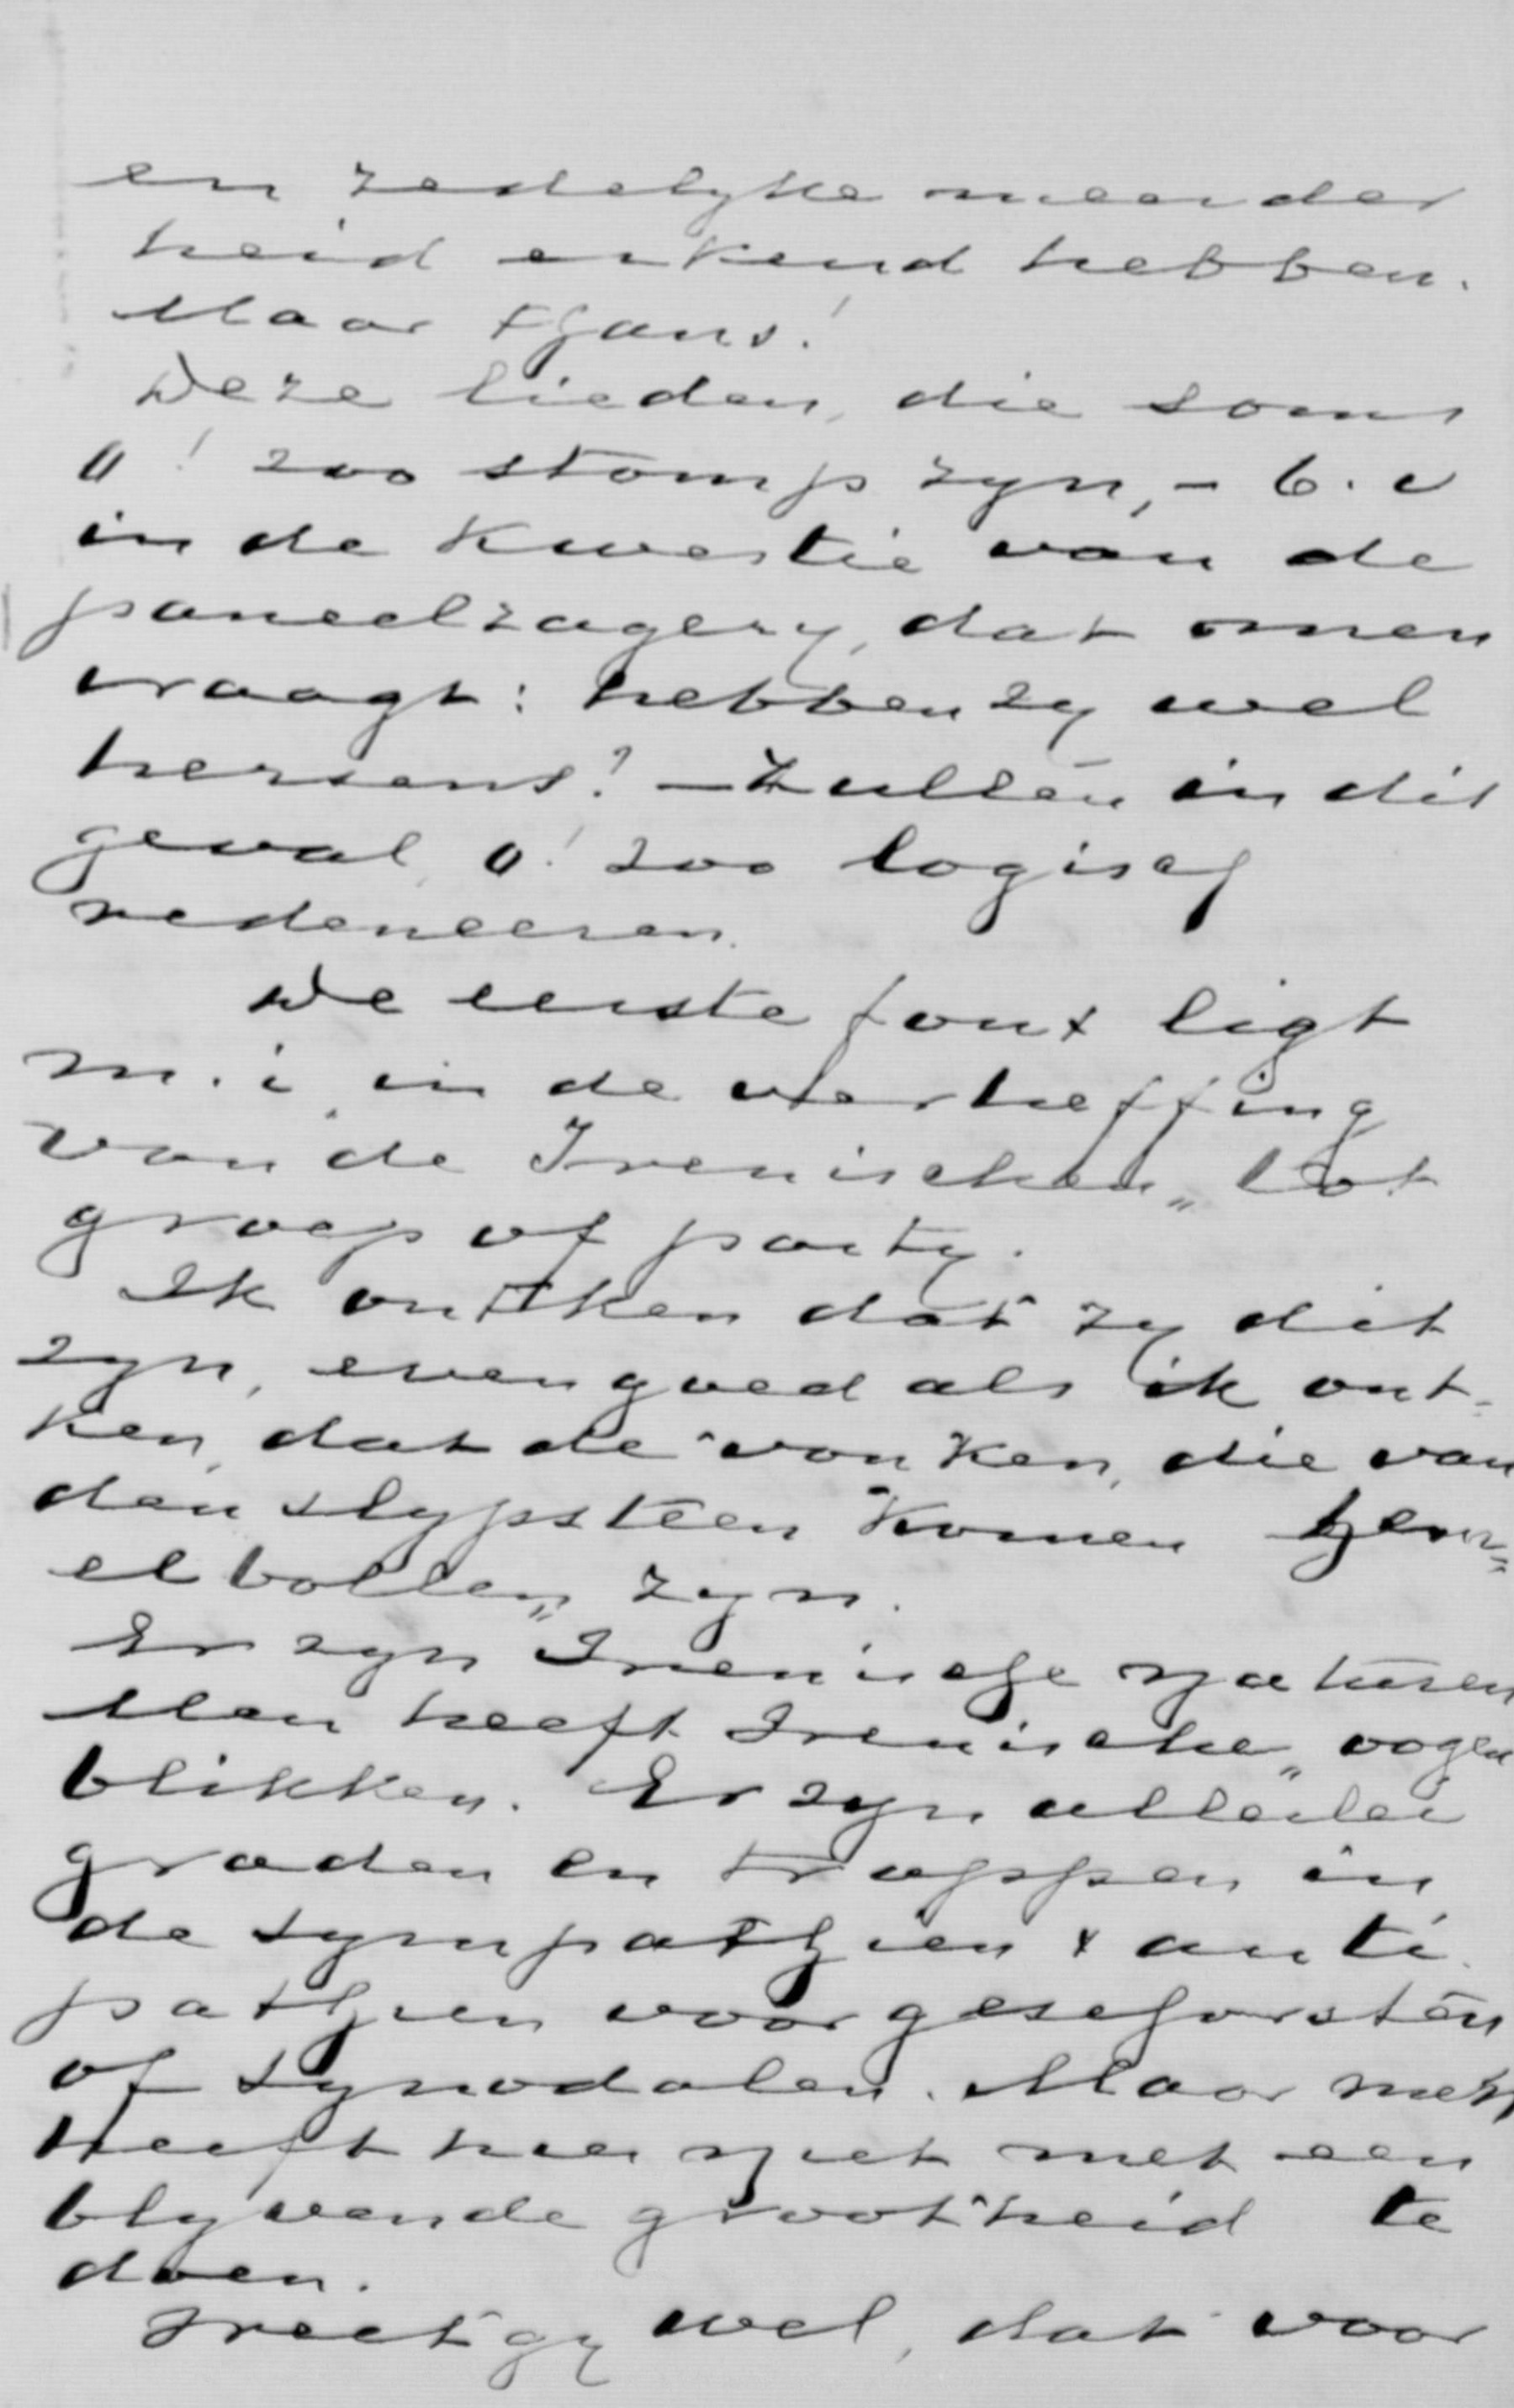 en zedelyke meerder
heid erkend hebben.
Maar thans!
Deze lieden, die soms
o! zoo stomp zyn, - b.v
in de kwestie van de
paneelzagery, dat men
vraagt: hebben zy wel
hersens? - zullen in dit
geval, o! zoo logisch
redeneeren.
De eerste fout ligt
m.i. in de verheffing
van de Irenischen" tot
groep of party.
Ik ontken dat zy dit
zyn, evengoed als ik ont-
ken, dat de vonken, die van
den slypsteen komen "hem=
elbollen" zyn.
Er zyn Irenische naturen
Men heeft Irenische" oogen
blikken. Er zyn allerlei
graden en trappen in
de sympathien & anti
pathien voor geschorsten
of synodalen. Maar men
heeft hier niet met een
blyvende grootheid te
doen.
Weet gy wel, dat voor